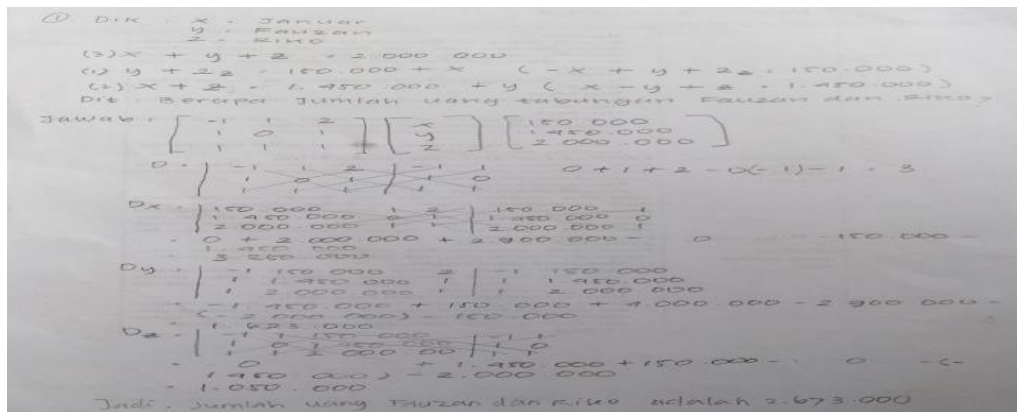 ① Dik : x = Januar
y = Fauzan
z = Riko
(3) x + y + z = 2.000.000
(1) y + 2z = 150.000 + x (-x + y + 2z = 150.000)
(2) x + z = 1.450.000 + y (x - y + z = 1.450.000)
Dit : Berapa jumlah uang tabungan Fauzan dan Riko?
Jawab : [ -1 1 2 ] [ x ] [ 150.000 ]
1 0 1 y 1.450.000
1 1 1 z 2.000.000
D = | -1 1 2 | -1 1 0 + 1 + 2 - 0 (-1) - 1 = 3
1 0 1 | 1 0
1 1 1 | 1 1
Dx = | 150.000 1 2 | 150.000 1
1.450.000 0 1 | 1.450.000 0
2.000.000 1 1 | 2.000.000 1
= 0 + 2.000.000 + 2.900.000 - 0 - 150.000 -
1.450.000
= 3.260.000
Dy = | -1 150.000 2 | -1 150.000
1 1.450.000 1 | 1 1.450.000
1 2.000.000 1 | 1 2.000.000
= -1.450.000 + 150.000 + 4.000.000 - 2.900.000 -
(-2.000.000) - 150.000
= 1.623.000
Dz = | -1 1 150.000 | -1 1
1 0 1.450.000 | 1 0
1 1 2.000.00
= 0 + 1.450.000 + 150.000 - 0 - (-
1.450.000) - 2.000.000
= 1.050.000
Jadi, jumlah uang Fauzan dan Riko adalah 2.673.000